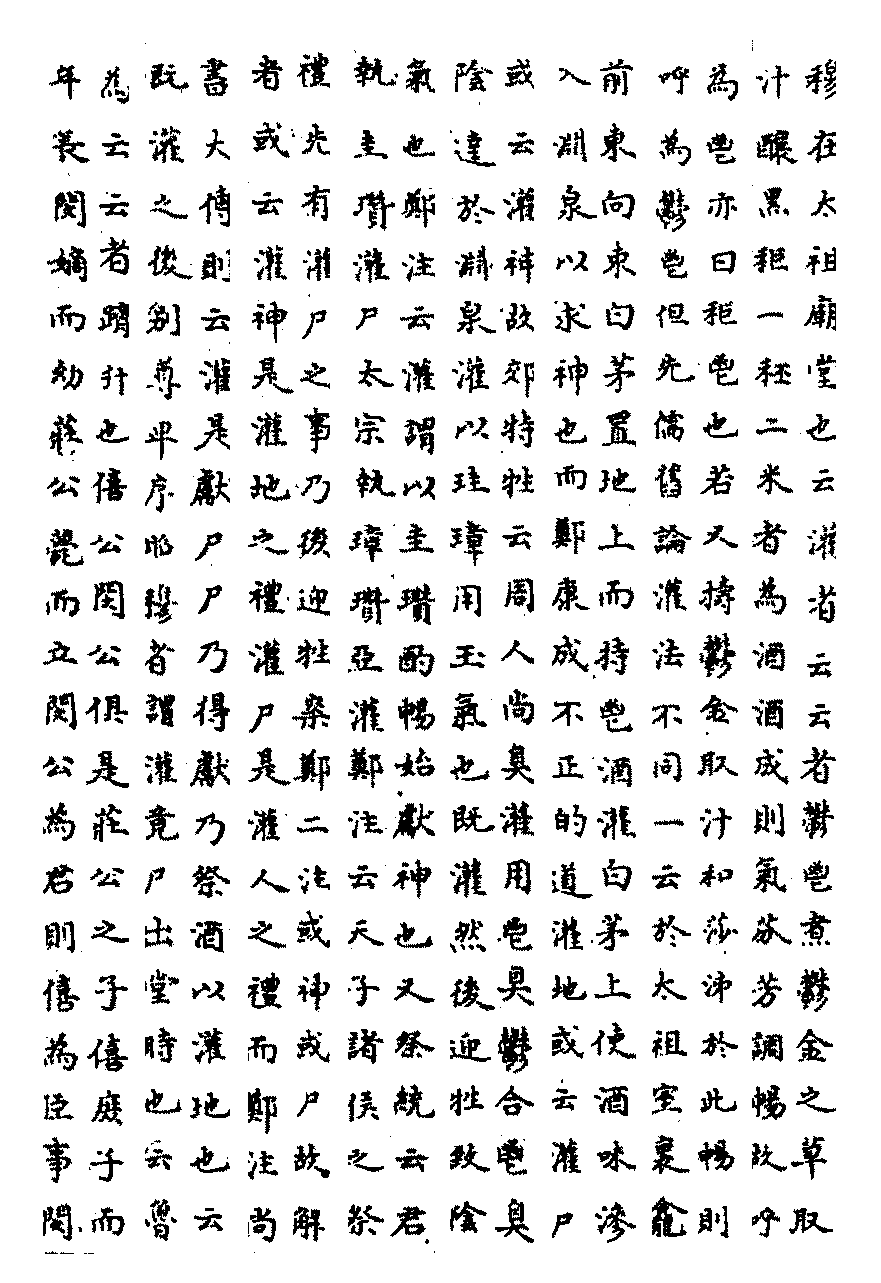 穆在太祖廟堂也云灌者云云者鬱鬯煮鬱金之草取
汁釀黑秬一秠二米者為酒酒成則氣芬芳調暢故呼
為鬯亦曰秬鬯也若又擣鬱金取汁和莎沛於此暢則
呼為鬱鬯但先儒舊論灌法不同一云於太祖室裏龕
前東向束白茅置地上而持鬯酒灌白茅上使酒味滲
入淵泉以求神也而鄭康成不正的道灌地或云灌尸
或云灌神故郊特牲云周人尚臭灌用鬯臭鬱合鬯臭
陰達於淵泉灌以珪璋用玉氣也既灌然後迎牲致陰
氣也鄭注云灌謂以圭瓚酌暢始獻神也又祭統云君
執圭瓚灌尸太宗執璋瓚亞灌鄭注云天子諸侯之祭
禮先有灌尸之事乃後迎牲案鄭二注或神或尸故解
者或云灌神是灌地之禮灌尸是灌人之禮而鄭注尚
書大傳則云灌是獻尸尸乃得獻乃祭酒以灌地也云
既灌之後別尊卑序昭穆者謂灌竟尸出堂時也云魯
為云云者躋升也僖公閔公俱是莊公之子僖庶子而
年長閔嫡而幼莊公薨而立閔公為君則僖為臣事閔